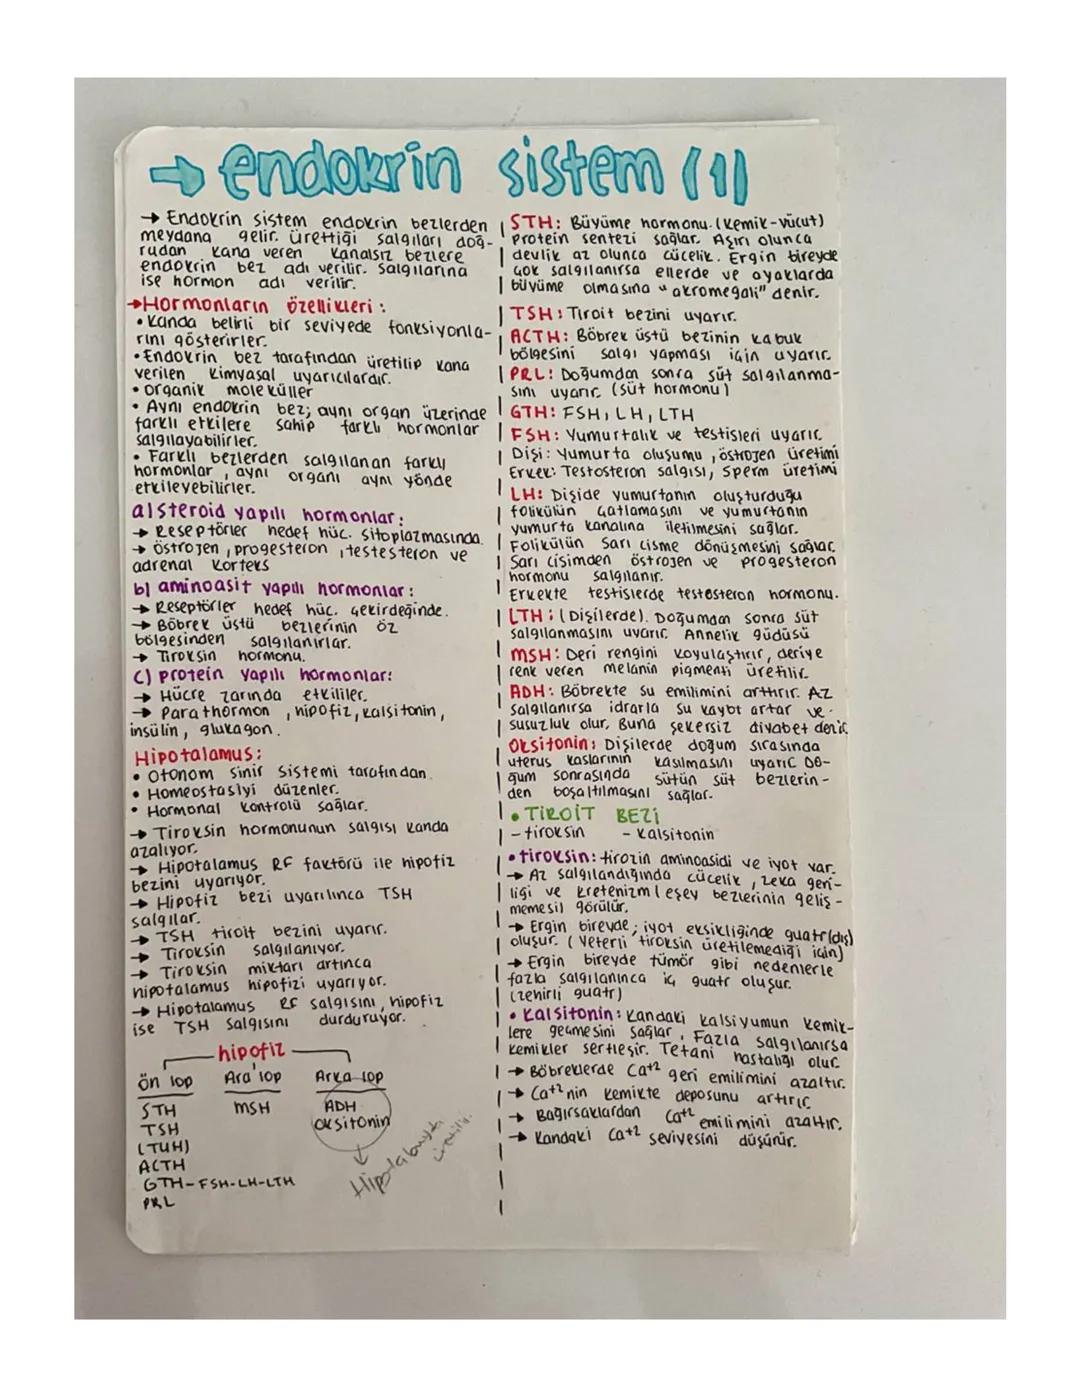 → endokrin sistem (1)
→ Endokrin sistem endokrin bezlerden
meydana gelir. ürettiği salgıları doğ-
rudan kana veren kanalsız bezlere
endokrin bez adı verilir. Salgılarına
ise hormon adı verilir.
→Hormonların özellikleri:
• Kanda belirli bir seviyede fonksiyonla-
rını gösterirler.
• Endokrin bez tarafından üretilip kana
verilen kimyasal uyarıcılardır.
• organik moleküller
• Aynı endokrin bez; aynı organ üzerinde
farklı etkilere sahip farklı hormonlar
salgılayabilirler.
• Farklı bezlerden salgılanan farklı
hormonlar, aynı organı aynı yönde
etkileyebilirler.
a) steroid yapılı hormonlar:
→ Reseptörler hedef hüc. sitoplazmasında.
→ östrojen, progesteron, testesteron ve
adrenal korteks
b) aminoasit yapılı hormonlar:
→ Reseptörler hedef hüc. çekirdeğinde.
→ Böbrek üstü bezlerinin öz
bölgesinden salgılanırlar.
→ Tiroksin hormonu.
c) protein yapılı hormonlar:
→ Hücre zarında etkililer.
→ Parathormon, hipofiz, kalsitonin,
insülin, glukagon.
Hipotalamus:
• Otonom sinir sistemi tarafından.
• Homeostasiyi düzenler.
• Hormonal kontrolü sağlar.
→ Tiroksin hormonunun salgısı kanda
azalıyor.
→ Hipotalamus RF faktörü ile hipofiz
bezini uyarıyor.
→ Hipofiz bezi uyarılınca TSH
salgılar.
→ TSH tiroit bezini uyarır.
→ Tiroksin salgılanıyor.
→ Tiroksin miktarı artınca
hipotalamus hipofizi uyarıyor.
→ Hipotalamus RF salgısını, hipofiz
ise TSH salgısını durduruyor.
hipofiz
ön lop Ara lop Arka lop
STH MSH ADH
TSH oksitonin
(TUH)
ACTH
GTH-FSH-LH-LTH
PRL
Hipotalamusta
üretilir.
STH: Büyüme hormonu. (kemik-vücut)
protein sentezi sağlar. Aşırı olunca
devlik az olunca cücelik. Ergin bireyde
çok salgılanırsa ellerde ve ayaklarda
büyüme olmasına "akromegali" denir.
TSH: Tiroit bezini uyarır.
ACTH: Böbrek üstü bezinin kabuk
bölgesini salgı yapması için uyarır.
PRL: Doğumdan sonra süt salgılanma-
sını uyarır. (süt hormonu)
GTH: FSH, LH, LTH
FSH: Yumurtalık ve testisleri uyarır.
Dişi: Yumurta oluşumu, östrojen üretimi
Erkek: Testosteron salgısı, Sperm üretimi
LH: Dişide yumurtanın oluşturduğu
folikülün çatlamasını ve yumurtanın
yumurta kanalına iletilmesini sağlar.
Folikülün sarı cisme dönüşmesini sağlar.
Sarı cisimden östrojen ve progesteron
hormonu salgılanır.
Erkekte testislerde testosteron hormonu.
LTH: (Dişilerde). Doğumdan sonra süt
salgılanmasını uyarır. Annelik güdüsü
MSH: Deri rengini koyulaştırır, deriye
renk veren melanin pigmenti üretilir.
ADH: Böbrekte su emilimini arttırır. Az
salgılanırsa idrarla su kaybı artar ve
susuzluk olur. Buna şekersiz diyabet denir.
Oksitonin: Dişilerde doğum sırasında
uterus kaslarının kasılmasını uyarır. Do-
ğum sonrasında sütün süt bezlerin-
den boşaltılmasını sağlar.
• TİROİT BEZİ
- tiroksin - Kalsitonin
• tiroksin: tirozin aminoasidi ve iyot var.
→ Az salgılandığında cücelik, zeka geri-
liği ve kretenizm (eşey bezlerinin geliş-
memesi) görülür.
→ Ergin bireyde; iyot eksikliğinde guatr(dış)
oluşur. (Yeterli tiroksin üretilemediği için)
→ Ergin bireyde tümör gibi nedenlerle
fazla salgılanınca iç guatr oluşur.
(zehirli guatr)
• Kalsitonin: Kandaki kalsiyumun kemik-
lere geçmesini sağlar. Fazla salgılanırsa
kemikler sertleşir. Tetani hastalığı olur.
→ Böbreklerde Ca+2 geri emilimini azaltır.
→ Ca+2 nin kemikte deposunu artırır.
→ Bağırsaklardan Ca+2 emilimini azaltır.
→ Kandaki Ca+2 seviyesini düşürür.